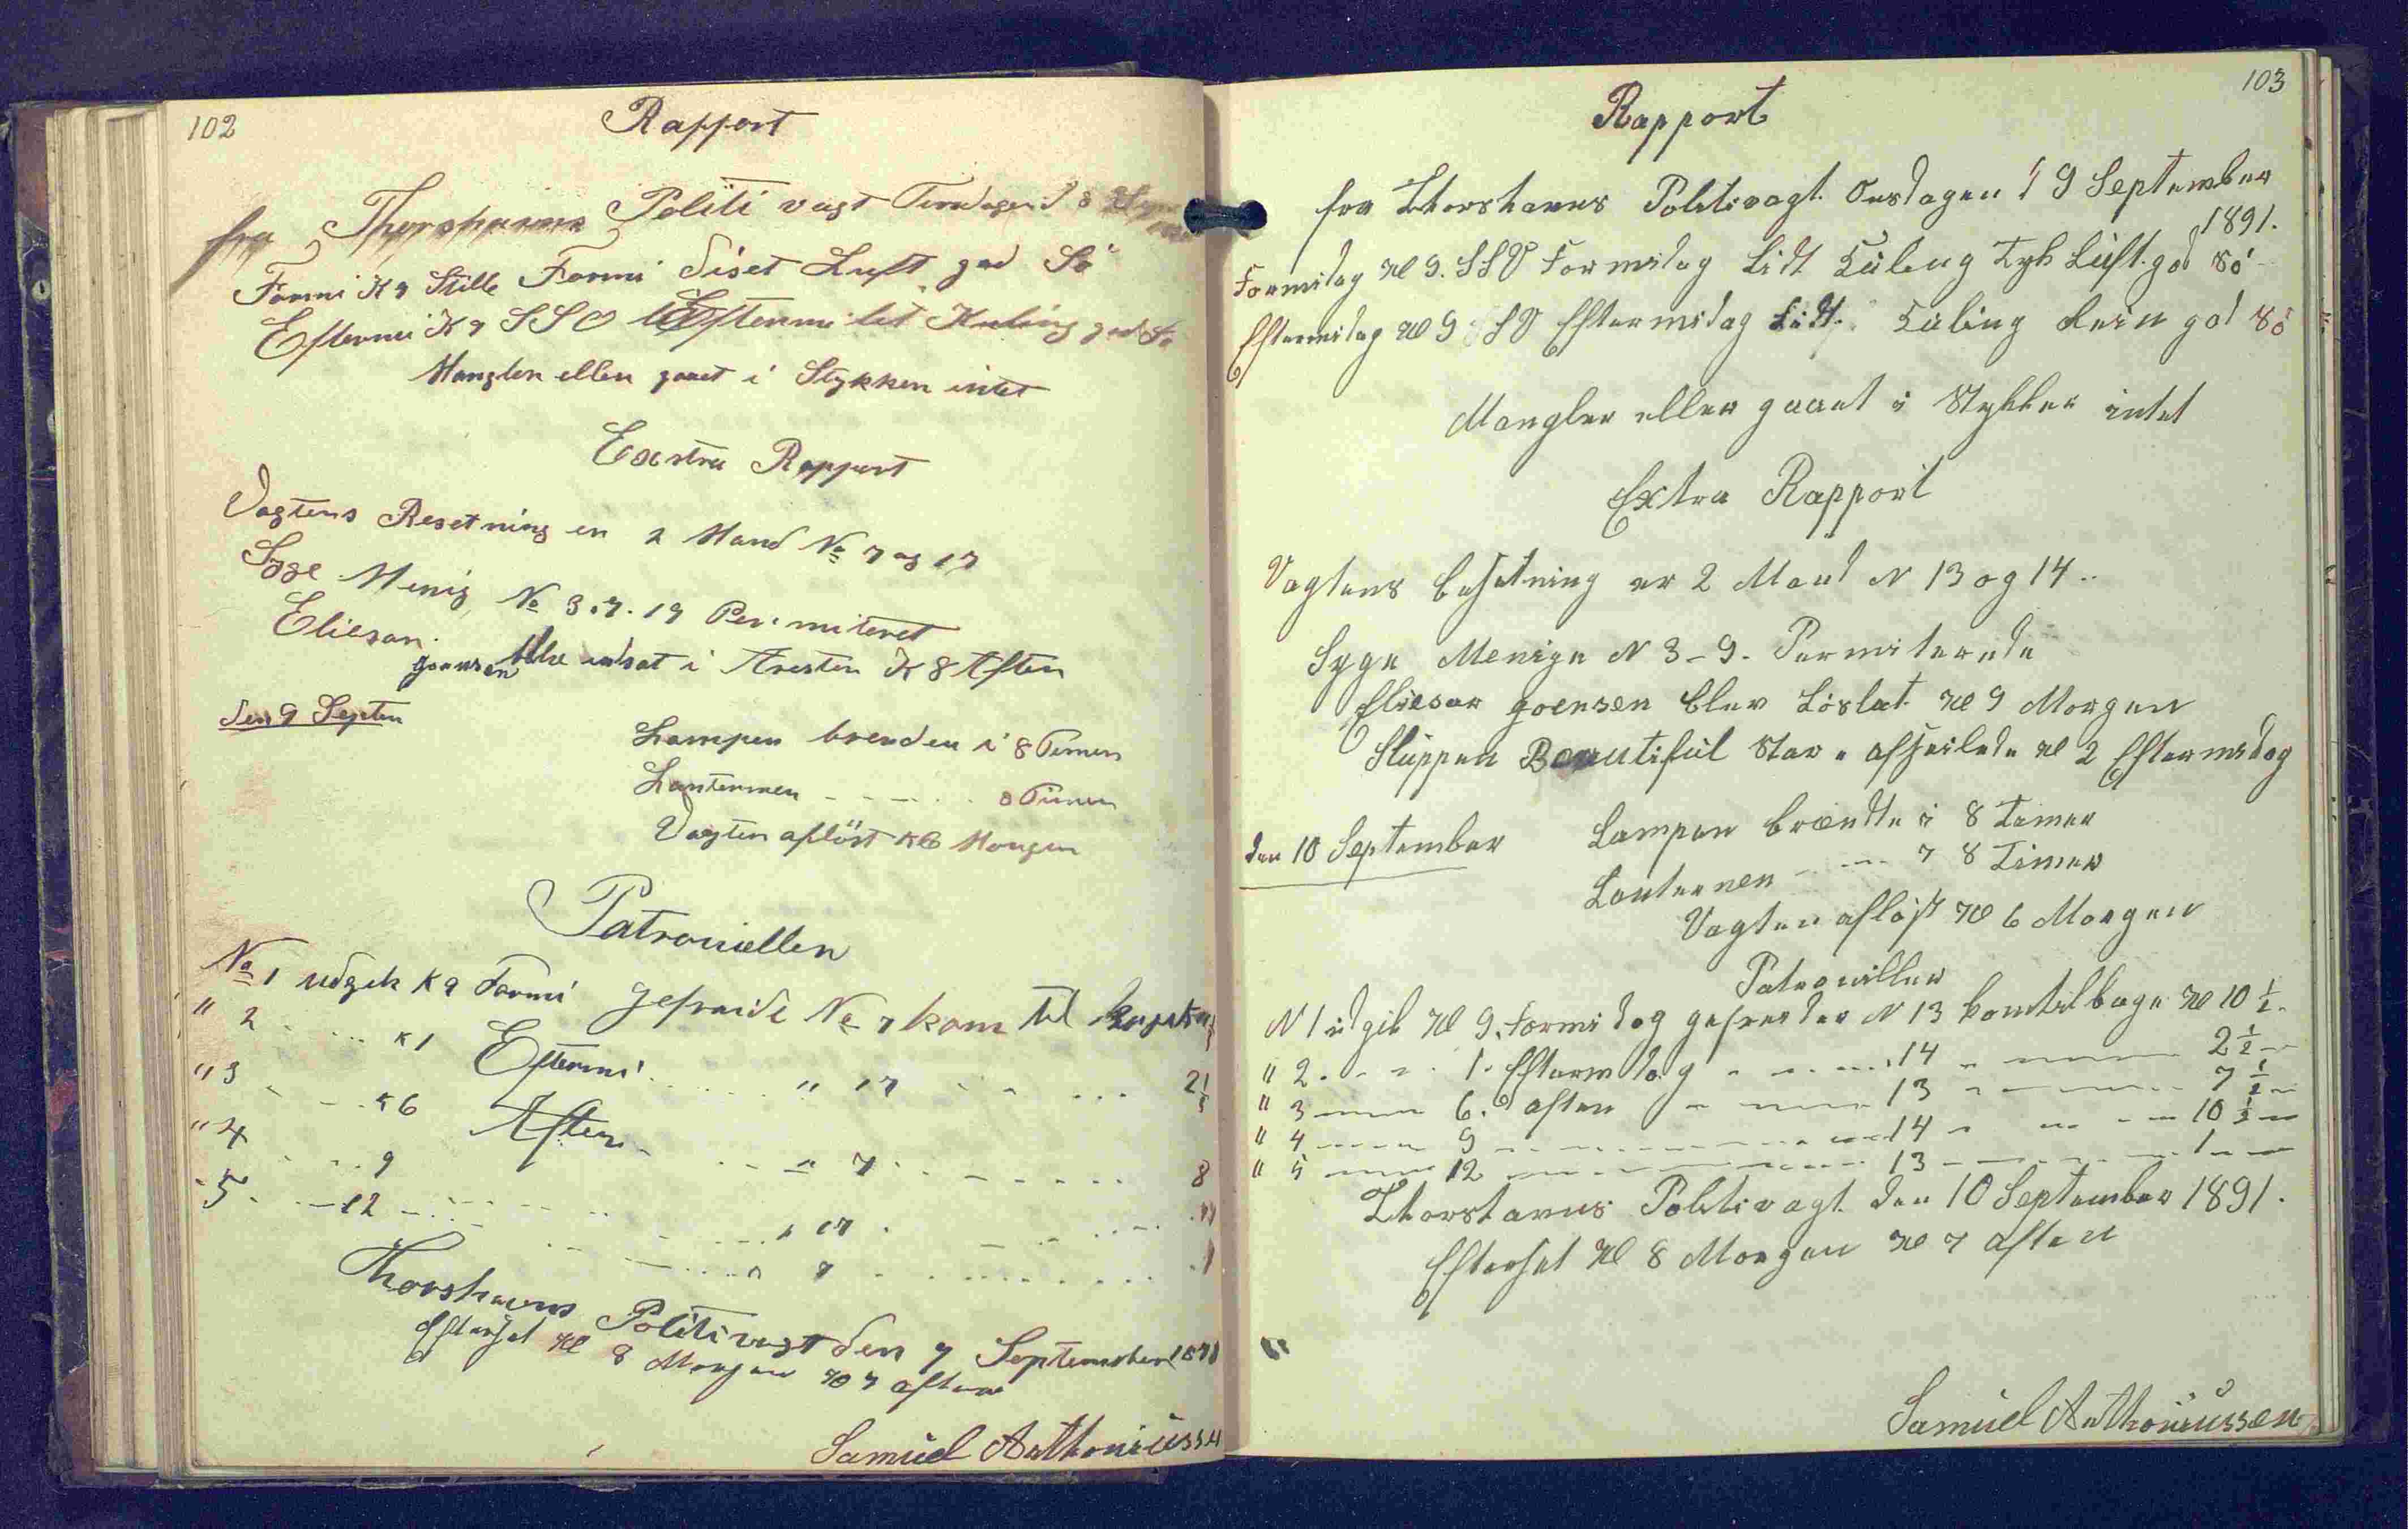 102
Rapport
fra Thorshavns Politi vagt Tirsdagen d 8
Formi K 9 Stille Formi diset Luft god Sö
Eftermi K 9 SSO Eftermi let Kuling god Sö
Mangler eller gaaet i Stykker intet
Exstra Rapport
Vagtens Besetning er 2 Mand No 7 og 17
Syge Menig No 3. 9. 19 Permiteret
Eliesar
Joensen blev indsat i Aresten K 8 Aften
den 9 Septen
Lampen brenden i 8 Timer
Lanternen - - - - 8 Timer
Vagten aflöst K 6 Morgen
Patrouiller
No 1 udgik K 9 Formi gefreide No 7 kom til
" 2 - - - K 1 Eftermi - - - " 17 - - - 2½
" 3 - - - K 6 Aften - - - " 7 - - - 8
" 4 - - - 9 - - - " 17 - - -
- 5 - - - 12 - - - " 7 - - - 1
Thorshavns Politivagt den 9 September 1891
Efterset Kl 8 Morgen Kl 7 aften
Samuel Anthoniussen
103
Rapport
fra Thorshavns Politivagt Onsdagen d 9 September
1891.
Formidag Kl 9. SSV Formidag Lidt Kuling Tyk Luft. god Sö
Eftermidag Kl 9 SV Eftermidag Lidt. Kuling Rein god Sö
Mangler eller gaaet i Stykker intet
Extra Rapport
Vagtens besetning er 2 Mand N 13 og 14..
Syge Menige N 3-9. Permiterede
Eliesar Joensen blev Löslat Kl 9 Morgen
Sluppen Beautiful Star afseilede Kl 2 Eftermidag
den 10 September
Lampen brændte i 8 Timer
Lanternen - - - - 7 8 Timer
Vagten aflöst Kl 6 Morgen
Patrouiller
N 1 udgik Kl 9. Formidag gefreider N 13 kom tilbage Kl 10 ½ -
" 2 - - - 1. Eftermidag - - - 14 - - - 2 ½ -
" 3 - - - 6. aften - - - 13 - - - 7 ½ -
" 4 - - - 9 - - - 14 - - - 10 ½ -
" 5 - - - 12 - - - 13 - - - 1 - -
Thorshavns Politivagt den 10 September 1891.
Efterset Kl 8 Morgen Kl 7 aften
Samuel Anthoniussen